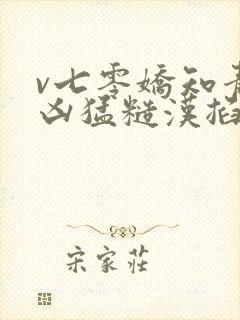 v七零嬌知青
凶猛糙漢掐
宋家莊